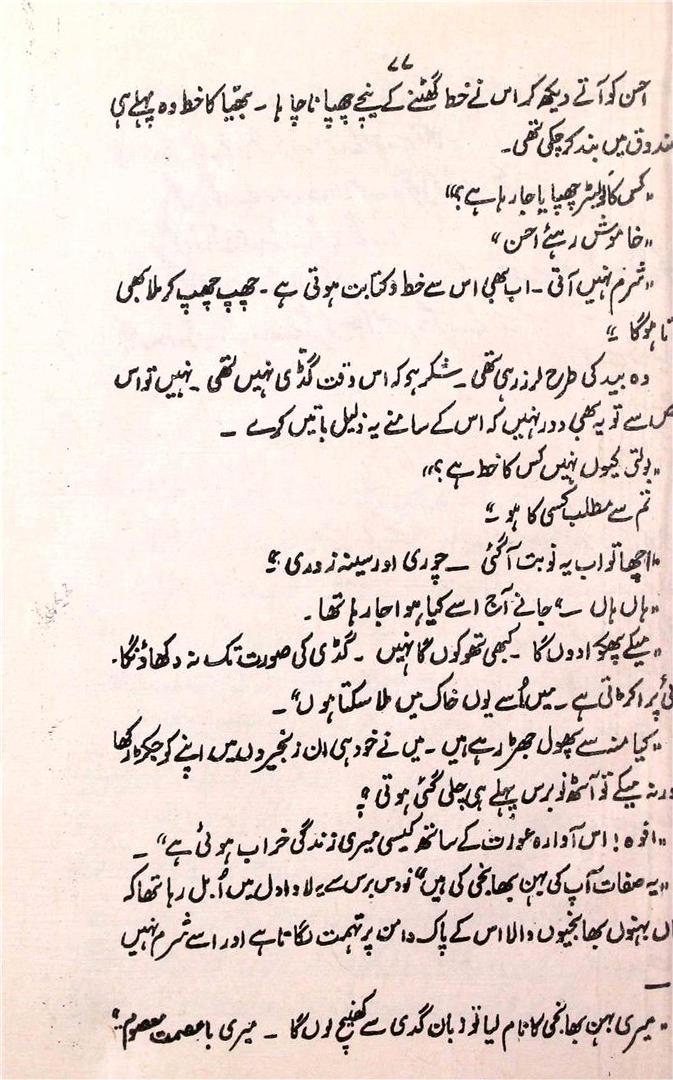 ۷۷
احسن کو آتے دیکھ کر اس نے خط گھٹنے کے نیچے چھپانا چاہا ۔ بھیّا کا خط وہ پہلے ہی
ندوق میں بند کر چکی تھی۔
"کس کا لولیٹر چھپایا جا رہا ہے؟"
"خاموش رہئے احسن"
"شرم نہیں آتی ۔ اب بھی اس سے خط و کتابت ہوتی ہے ۔ چھپ چھپ کر ملا بھی
تا ہوگا ۔"
وہ بید کی طرح لرز رہی تھی ۔ شکر ہے کہ اس وقت گڈی نہیں تھی ۔ نہیں تو اس
ص سے تو یہ بھی دور نہیں کہ اس کے سامنے یہ ذلیل باتیں کرے ۔
"بولتی کیوں نہیں کس کا خط ہے؟"
تم سے مطلب کسی کا ہو ۔"
"اچھا تو اب یہ نوبت آگئی ۔ چوری اور سینہ زوری ؟"
"ہاں ہاں ۔" جانے آج اسے کیا ہوا جا رہا تھا ۔
"میکے پھکوا دوں گا ۔ کبھی تھوکوں گا نہیں ۔ گڈی کی صورت تک نہ دکھاؤنگا۔
ئی پر اکڑتی ہے ۔ میں اُسے یوں خاک میں ملا سکتا ہوں" ۔
"کیا منہ سے پھول جھڑ رہے ہیں ۔ میں نے خود ہی ان زنجیروں میں اپنے کو جکڑ رکھا
ورنہ میکے تو آٹھ نو برس پہلے ہی چلی گئی ہوتی ؟
"افوہ! اس آوارہ عورت کے ساتھ کیسی میری زندگی خراب ہوئی ہے" ۔
"یہ صفات آپ کی بہن بھانجی کی ہیں" نو دس برس سے یہ لاوا دل میں اُبل رہا تھا کہ
اں بہنوں بھانجیوں والا اس کے پاک دامن پر تہمت لگاتا ہے اور اسے شرم نہیں
۔
"میری بہن بھانجی کا نام لیا تو زبان گدی سے کھینچ لوں گا ۔ میری با عصمت معصوم"